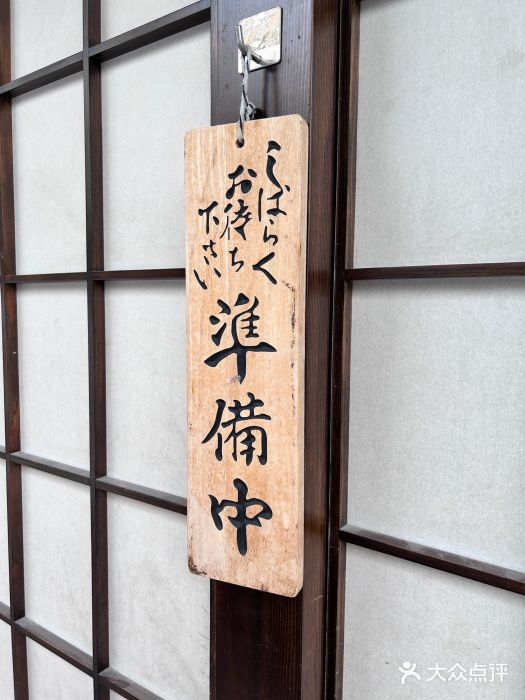 しばらく
お待ち
下さい
準備中
大众点评